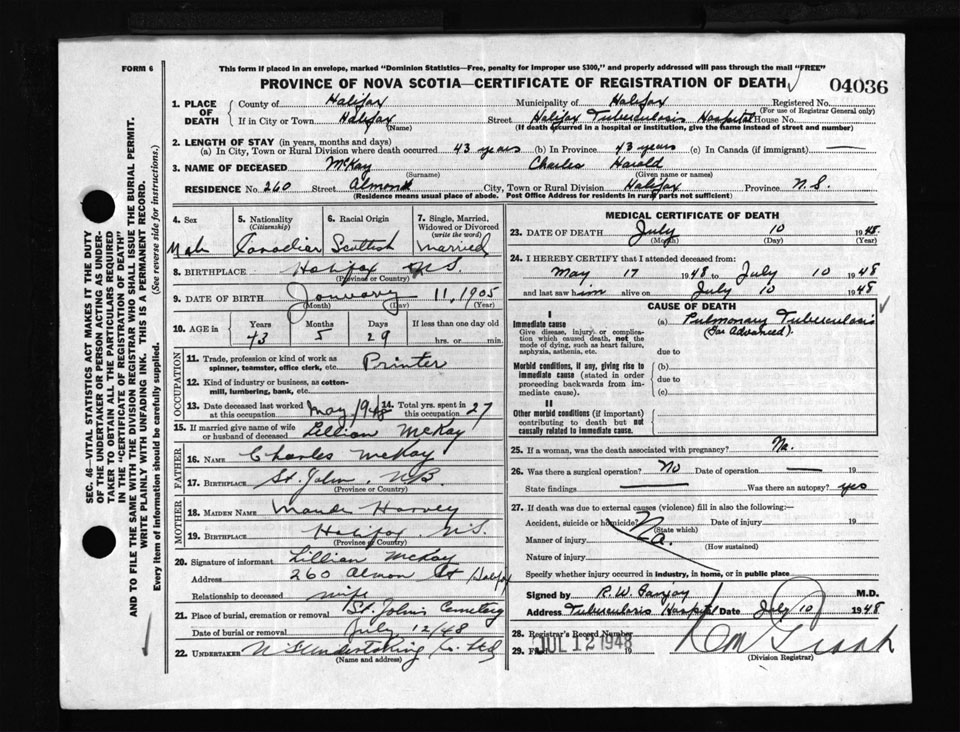 FORM 6
This form if placed in an envelope, marked "Dominion Statistics—Free, penalty for improper use $300," and properly addressed will pass through the mail "FREE"
PROVINCE OF NOVA SCOTIA—CERTIFICATE OF REGISTRATION OF DEATH
04036
1. PLACE OF DEATH
County of Halifax Municipality of Halifax Registered No.
(For use of Registrar General only)
If in City or Town Halifax Street Halifax Tuberculosis Hospital House No.
(Name) (If death occurred in a hospital or institution, give the name instead of street and number)
2. LENGTH OF STAY (in years, months and days)
(a) In City, Town or Rural Division where death occurred 43 years (b) In Province 43 years (c) In Canada (if immigrant) —
3. NAME OF DECEASED McKay Charles Harold
(Surname) (Given name or names)
RESIDENCE No. 260 Street Almond City, Town or Rural Division Halifax Province N.S.
(Residence means usual place of abode. Post Office Address for residents in rural parts not sufficient)
4. Sex
Male
5. Nationality (Citizenship)
Canadian
6. Racial Origin
Scottish
7. Single, Married, Widowed or Divorced (write the word)
Married
8. BIRTHPLACE Halifax N.S.
(Province or Country)
9. DATE OF BIRTH January 11, 1905
(Month) (Day) (Year)
10. AGE in Years Months Days If less than one day old
43 5 29 hrs. or min.
OCCUPATION
11. Trade, profession or kind of work as spinner, teamster, office clerk, etc. Printer
12. Kind of industry or business, as cotton-mill, lumbering, bank, etc.
13. Date deceased last worked at this occupation May 1948
14. Total yrs. spent in this occupation 27
15. If married give name of wife or husband of deceased Lillian McKay
FATHER
16. Name Charles McKay
17. Birthplace St. John, N.B.
(Province or Country)
MOTHER
18. Maiden Name Maude Harvey
19. Birthplace Halifax, N.S.
(Province or Country)
20. Signature of informant Lillian McKay
Address 260 Almon St Halifax
Relationship to deceased wife
21. Place of burial, cremation or removal St. John's Cemetery
Date of burial or removal July 12/48
22. UNDERTAKER N S Undertaking Co. Ltd
(Name and address)
MEDICAL CERTIFICATE OF DEATH
23. DATE OF DEATH July 10 1948.
(Month) (Day) (Year)
24. I HEREBY CERTIFY that I attended deceased from:
May 17 1948 to July 10 1948
and last saw him alive on July 10 1948
CAUSE OF DEATH
I
Immediate cause
Give disease, injury or complication which caused death, not the mode of dying, such as heart failure, asphyxia, asthenia, etc.
(a) Pulmonary Tuberculosis
(Far Advanced).
due to
Morbid conditions, if any, giving rise to immediate cause (stated in order proceeding backwards from immediate cause).
(b)
due to
(c)
II
Other morbid conditions (if important) contributing to death but not causally related to immediate cause.
25. If a woman, was the death associated with pregnancy? Na.
26. Was there a surgical operation? No Date of operation — 19
State findings — Was there an autopsy? yes
27. If death was due to external causes (violence) fill in also the following:—
Accident, suicide or homicide? Na. Date of injury 19
(State which)
Manner of injury
(How sustained)
Nature of injury
Specify whether injury occurred in industry, in home, or in public place
Signed by R. W. M.D.
Address Tuberculosis Hospital Date July 10 1948
28. Registrar's Record Number
29. Filed JUL 12 1948 19
(Division Registrar)
SEC. 46—VITAL STATISTICS ACT MAKES IT THE DUTY
OF THE UNDERTAKER OR PERSON ACTING AS UNDER-
TAKER TO OBTAIN ALL THE PARTICULARS REQUIRED
IN THE "CERTIFICATE OF REGISTRATION OF DEATH"
AND TO FILE THE SAME WITH THE DIVISION REGISTRAR WHO SHALL ISSUE THE BURIAL PERMIT.
WRITE PLAINLY WITH UNFADING INK. THIS IS A PERMANENT RECORD.
Every item of information should be carefully supplied. (See reverse side for instructions.)